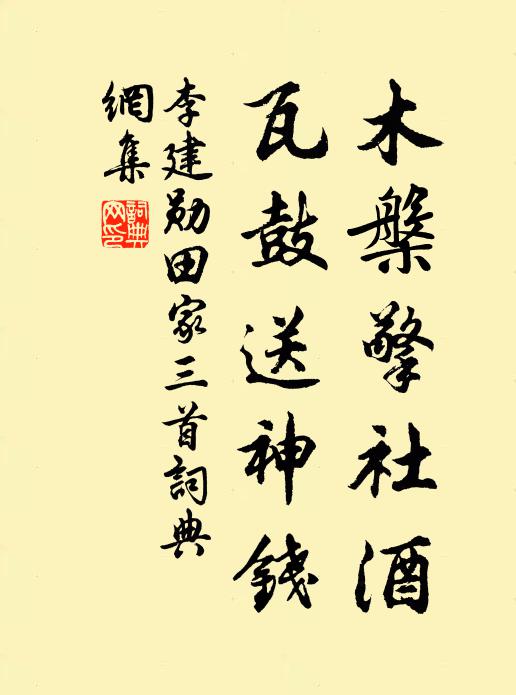 木槃擎社酒
瓦鼓送神錢
李建勛田家三首詞典
網集
詞典網印